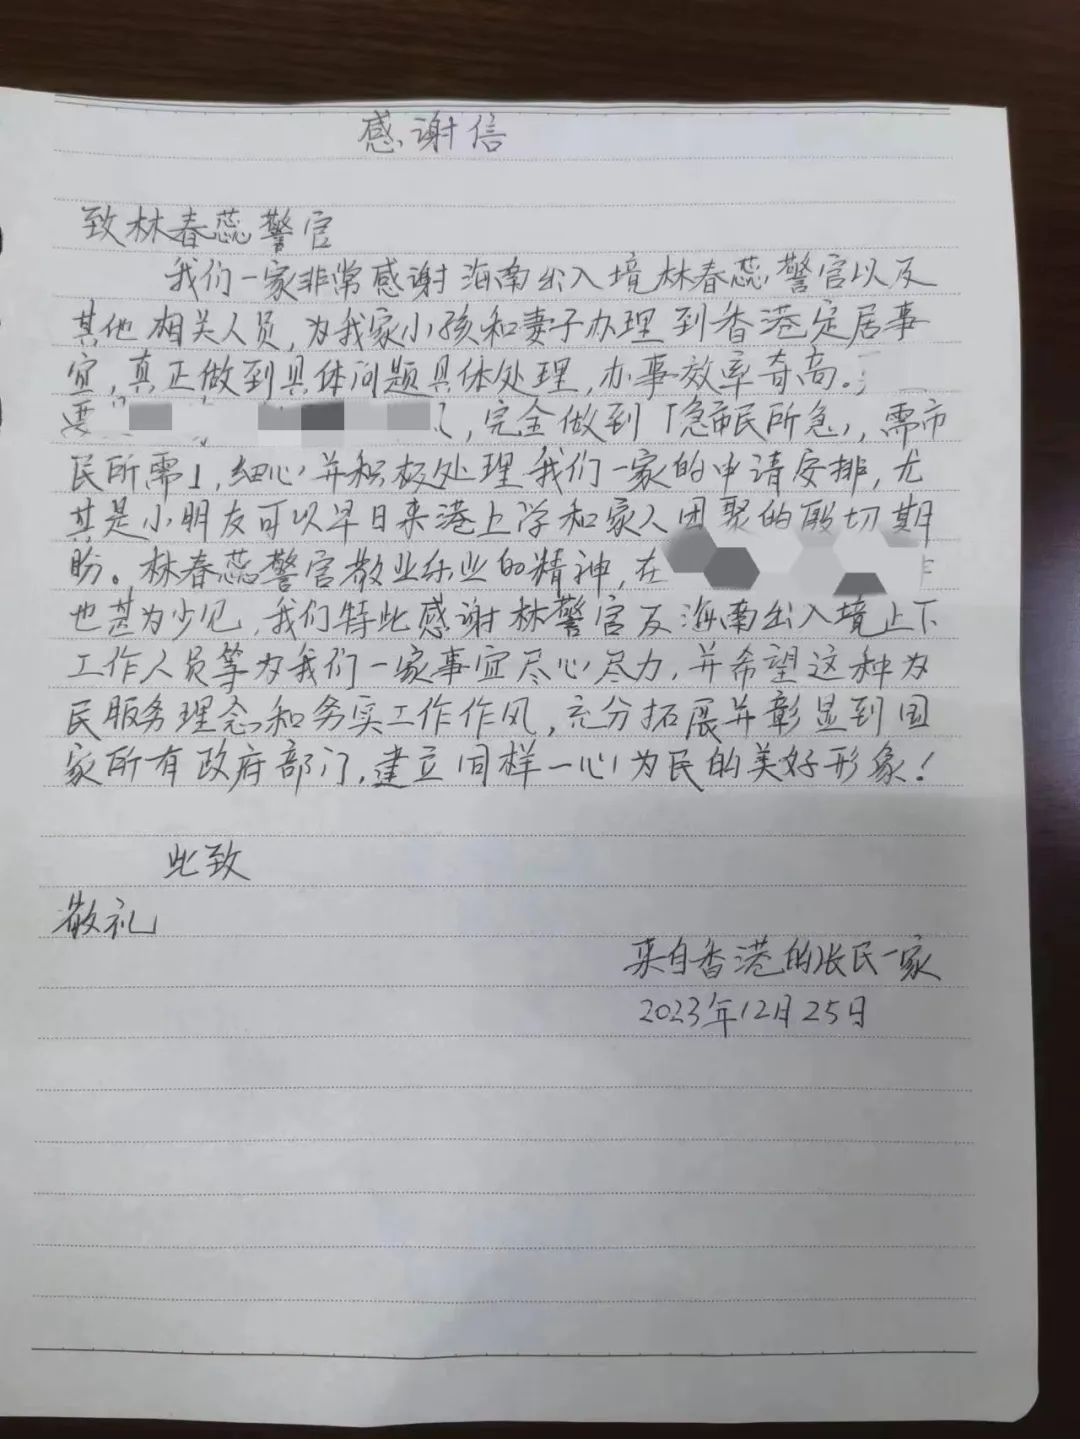 感谢信
致林春蕊警官
我们一家非常感谢海南出入境林春蕊警官以及
其他相关人员,为我家小孩和妻子办理到香港定居事
宜,真正做到具体问题具体处理,办事效率奇高。
,完全做到「急市民所急,需市
民所需」,细心并积极处理我们一家的申请安排,尤
其是小朋友可以早日来港上学和家人团聚的殷切期
盼。林春蕊警官敬业乐业的精神,在
也甚为少见,我们特此感谢林警官及海南出入境上下
工作人员等为我们一家事宜尽心尽力,并希望这种为
民服务理念和务实工作作风,充分拓展并彰显到国
家所有政府部门,建立同样一心为民的美好形象!
此致
敬礼
来自香港的张民一家
2023年12月25日